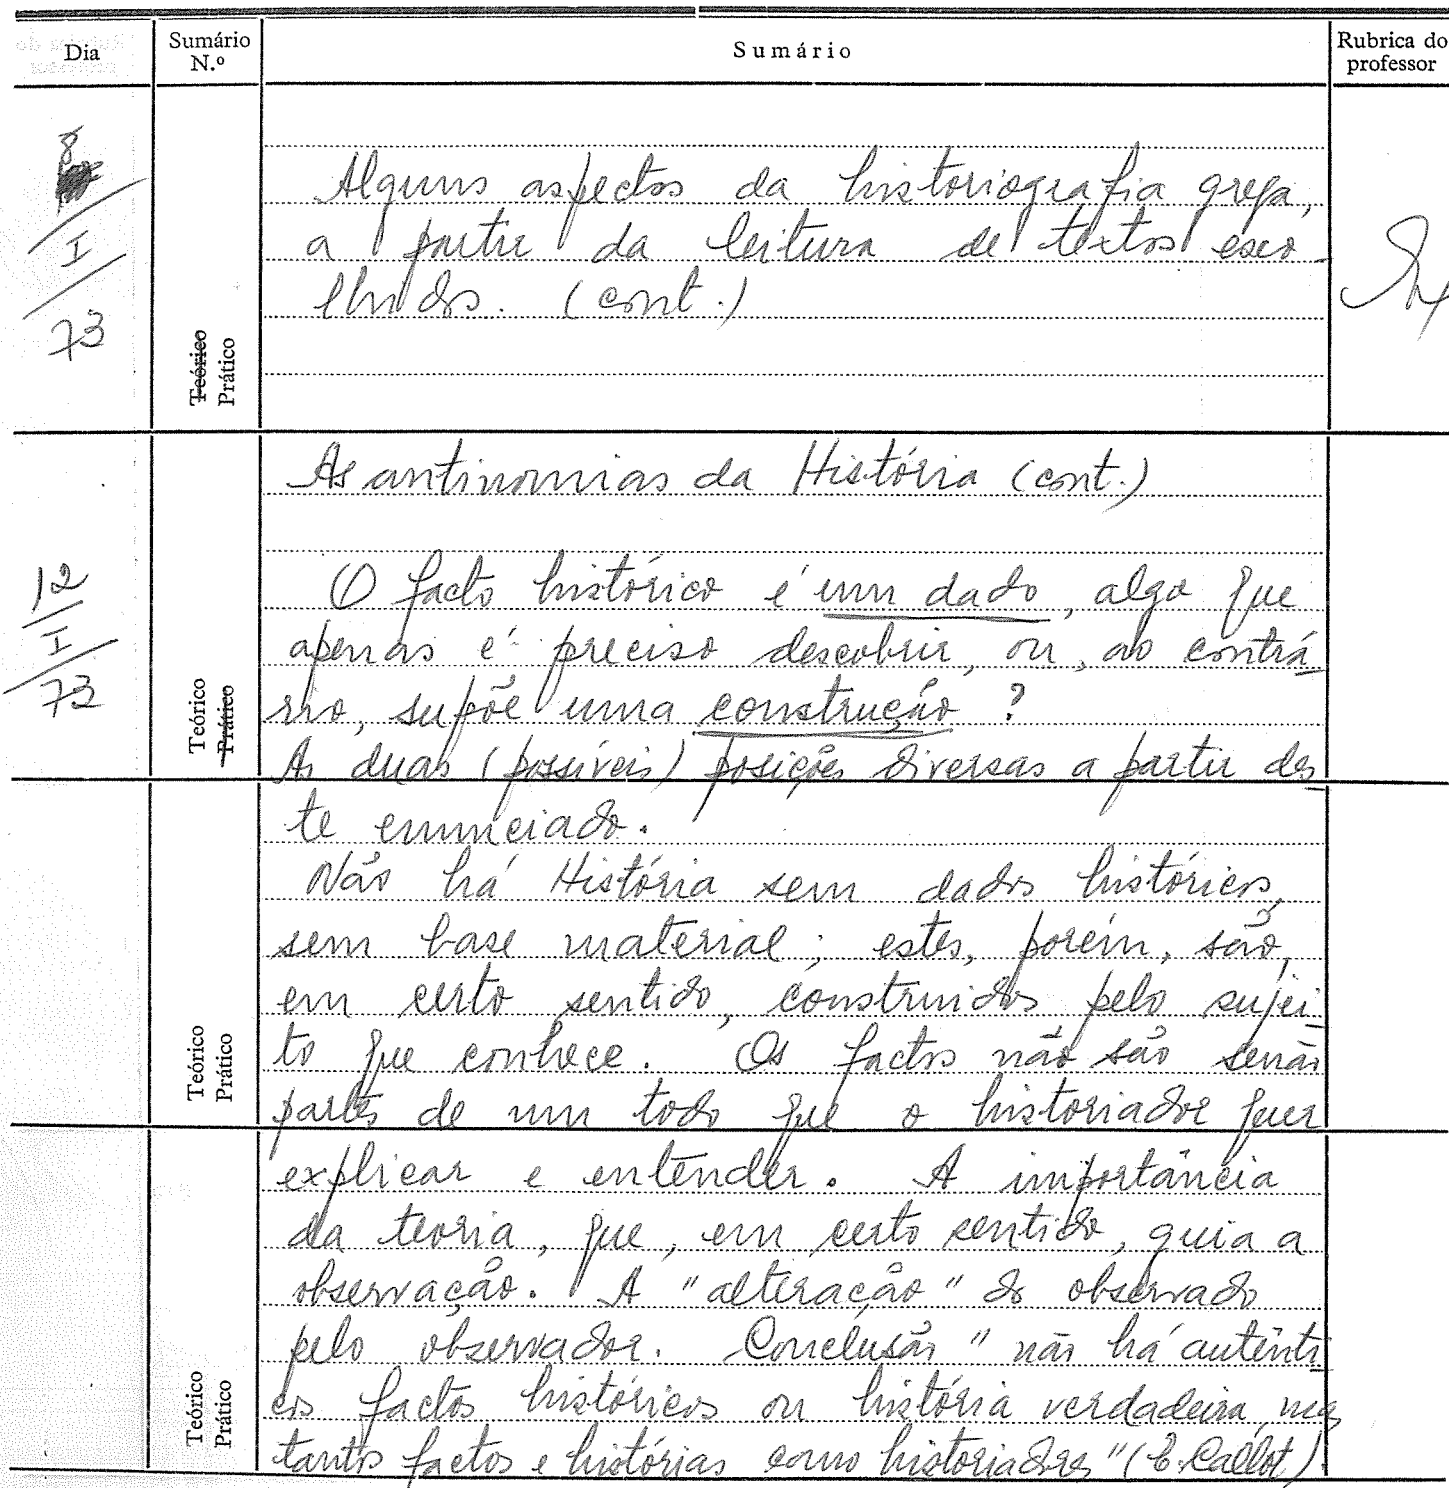 Dia
Sumário N.º
Sumário
Rubrica do professor
8
I
73
Teórico
Prático
Alguns aspectos da historiografia grega,
a partir da leitura de textos esco
lhidos. (cont.)
12
I
73
Teórico
Prático
As antinomias da História (cont.)
O facto histórico é um dado, algo que
apenas é preciso descobrir, ou, ao contrá
rio, supõe uma construção ?
As duas (possíveis) posições diversas a partir des
te enunciado.
Não há História sem dados históricos,
sem base material; estes, porém, são,
em certo sentido, construidos pelo sujei
to que conhece. Os factos não são senão
partes de um todo que o historiador quer
Teórico
Prático
explicar e entender. A importância
da teoria, que, em certo sentido, guia a
observação. A "alteração" do observado
pelo observador. Conclusão "não há autênti
cos factos históricos ou história verdadeira, mas
tantos factos e histórias como historiadores" (E. Callot).
Teórico
Prático